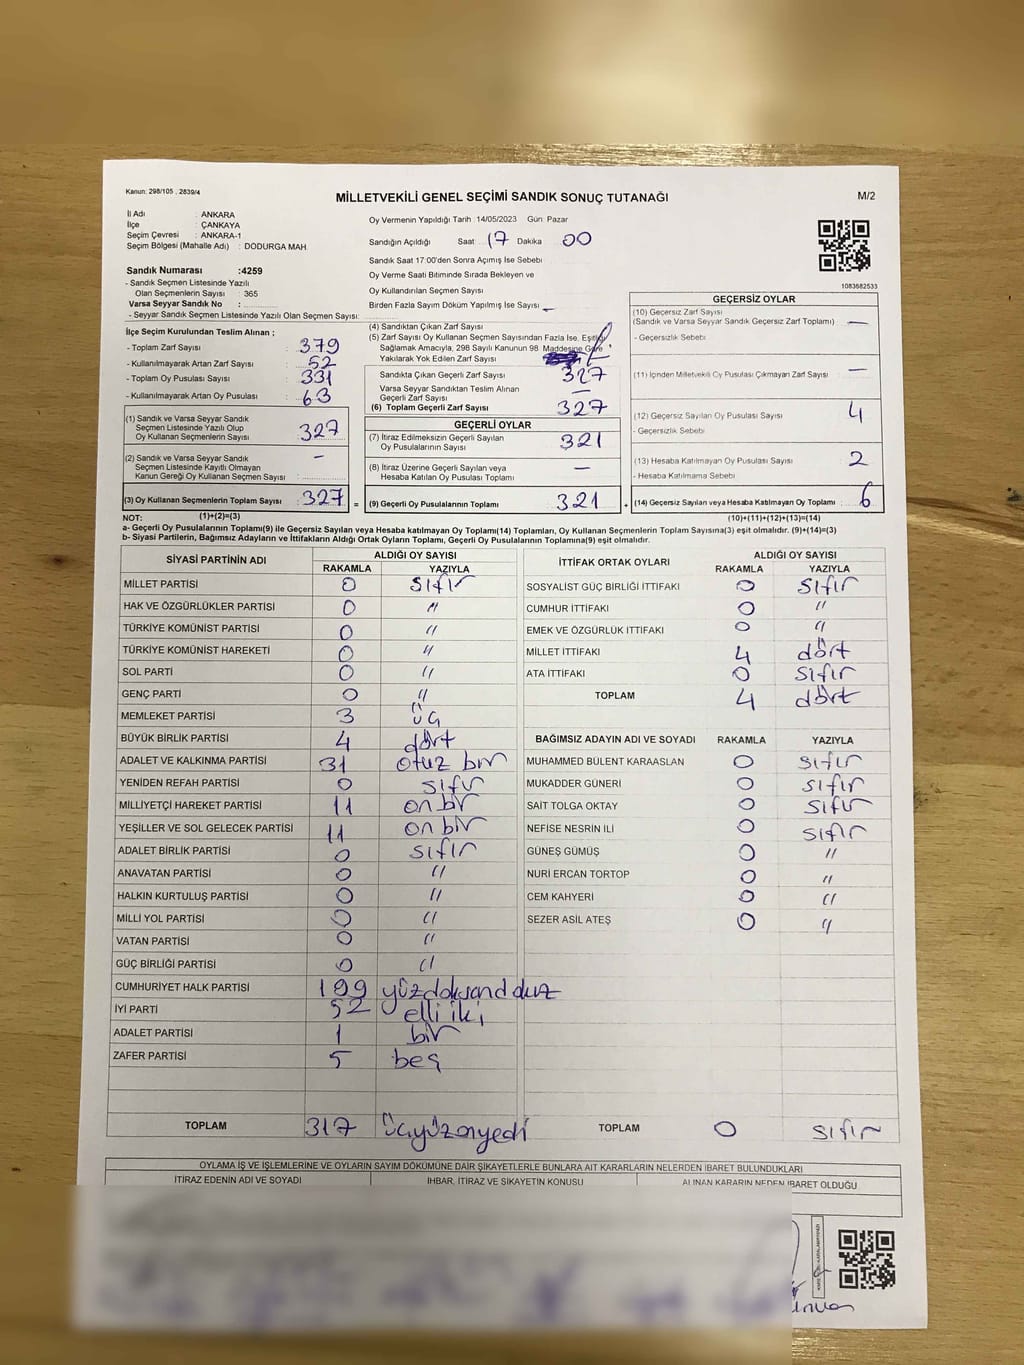 Kanun: 298/105 , 2839/4
MİLLETVEKİLİ GENEL SEÇİMİ SANDIK SONUÇ TUTANAĞI
M/2
İl Adı : ANKARA
İlçe : ÇANKAYA
Seçim Çevresi : ANKARA-1
Seçim Bölgesi (Mahalle Adı) : DODURGA MAH
Sandık Numarası :4259
- Sandık Seçmen Listesinde Yazılı
Olan Seçmenlerin Sayısı : 365
Varsa Seyyar Sandık No :
- Seyyar Sandık Seçmen Listesinde Yazılı Olan Seçmen Sayısı:
Oy Vermenin Yapıldığı Tarih : 14/05/2023 Gün: Pazar
Sandığın Açıldığı Saat 17 Dakika 00
Sandık Saat 17:00'den Sonra Açılmış İse Sebebi
Oy Verme Saati Bitiminde Sırada Bekleyen ve
Oy Kullandırılan Seçmen Sayısı
Birden Fazla Sayım Döküm Yapılmış İse Sayısı –
1083682533
İlçe Seçim Kurulundan Teslim Alınan ;
- Toplam Zarf Sayısı : 379
- Kullanılmayarak Artan Zarf Sayısı : 52
- Toplam Oy Pusulası Sayısı : 331
- Kullanılmayarak Artan Oy Pusulası : 63
(1) Sandık ve Varsa Seyyar Sandık
Seçmen Listesinde Yazılı Olup
Oy Kullanan Seçmenlerin Sayısı : 327
(2) Sandık ve Varsa Seyyar Sandık
Seçmen Listesinde Kayıtlı Olmayan
Kanun Gereği Oy Kullanan Seçmen Sayısı : –
(3) Oy Kullanan Seçmenlerin Toplam Sayısı : 327
(4) Sandıktan Çıkan Zarf Sayısı
(5) Zarf Sayısı Oy Kullanan Seçmen Sayısından Fazla İse, Eşitliği
Sağlamak Amacıyla, 298 Sayılı Kanunun 98. Maddesine Göre
Yakılarak Yok Edilen Zarf Sayısı
Sandıkta Çıkan Geçerli Zarf Sayısı 327
Varsa Seyyar Sandıktan Teslim Alınan
Geçerli Zarf Sayısı –
(6) Toplam Geçerli Zarf Sayısı 327
GEÇERLİ OYLAR
(7) İtiraz Edilmeksizin Geçerli Sayılan
Oy Pusulalarının Sayısı 321
(8) İtiraz Üzerine Geçerli Sayılan veya
Hesaba Katılan Oy Pusulası Toplamı –
= (9) Geçerli Oy Pusulalarının Toplamı 321 +
GEÇERSİZ OYLAR
(10) Geçersiz Zarf Sayısı
(Sandık ve Varsa Seyyar Sandık Geçersiz Zarf Toplamı) –
- Geçersizlik Sebebi
(11) İçinden Milletvekili Oy Pusulası Çıkmayan Zarf Sayısı –
(12) Geçersiz Sayılan Oy Pusulası Sayısı 4
- Geçersizlik Sebebi
(13) Hesaba Katılmayan Oy Pusulası Sayısı 2
- Hesaba Katılmama Sebebi
(14) Geçersiz Sayılan veya Hesaba Katılmayan Oy Toplamı : 6
NOT: (1)+(2)=(3) (10)+(11)+(12)+(13)=(14)
a- Geçerli Oy Pusulalarının Toplamı(9) ile Geçersiz Sayılan veya Hesaba katılmayan Oy Toplamı(14) Toplamları, Oy Kullanan Seçmenlerin Toplam Sayısına(3) eşit olmalıdır. (9)+(14)=(3)
b- Siyasi Partilerin, Bağımsız Adayların ve İttifakların Aldığı Ortak Oyların Toplamı, Geçerli Oy Pusulalarının Toplamına(9) eşit olmalıdır.
SİYASİ PARTİNİN ADI ALDIĞI OY SAYISI
RAKAMLA YAZIYLA
MİLLET PARTİSİ 0 sıfır
HAK VE ÖZGÜRLÜKLER PARTİSİ 0 "
TÜRKİYE KOMÜNİST PARTİSİ 0 "
TÜRKİYE KOMÜNİST HAREKETİ 0 "
SOL PARTİ 0 "
GENÇ PARTİ 0 "
MEMLEKET PARTİSİ 3 üç
BÜYÜK BİRLİK PARTİSİ 4 dört
ADALET VE KALKINMA PARTİSİ 31 otuz bir
YENİDEN REFAH PARTİSİ 0 sıfır
MİLLİYETÇİ HAREKET PARTİSİ 11 on bir
YEŞİLLER VE SOL GELECEK PARTİSİ 11 on bir
ADALET BİRLİK PARTİSİ 0 sıfır
ANAVATAN PARTİSİ 0 "
HALKIN KURTULUŞ PARTİSİ 0 "
MİLLİ YOL PARTİSİ 0 "
VATAN PARTİSİ 0 "
GÜÇ BİRLİĞİ PARTİSİ 0 "
CUMHURİYET HALK PARTİSİ 199 yüzdoksandokuz
İYİ PARTİ 52 elli iki
ADALET PARTİSİ 1 bir
ZAFER PARTİSİ 5 beş
TOPLAM 317 üçyüzonyedi
İTTİFAK ORTAK OYLARI ALDIĞI OY SAYISI
RAKAMLA YAZIYLA
SOSYALİST GÜÇ BİRLİĞİ İTTİFAKI 0 sıfır
CUMHUR İTTİFAKI 0 "
EMEK VE ÖZGÜRLÜK İTTİFAKI 0 "
MİLLET İTTİFAKI 4 dört
ATA İTTİFAKI 0 sıfır
TOPLAM 4 dört
BAĞIMSIZ ADAYIN ADI VE SOYADI RAKAMLA YAZIYLA
MUHAMMED BÜLENT KARAASLAN 0 sıfır
MUKADDER GÜNERİ 0 sıfır
SAİT TOLGA OKTAY 0 sıfır
NEFİSE NESRİN İLİ 0 sıfır
GÜNEŞ GÜMÜŞ 0 "
NURİ ERCAN TORTOP 0 "
CEM KAHYERİ 0 "
SEZER ASİL ATEŞ 0 "
TOPLAM 0 sıfır
OYLAMA İŞ VE İŞLEMLERİNE VE OYLARIN SAYIM DÖKÜMÜNE DAİR ŞİKAYETLERLE BUNLARA AİT KARARLARIN NELERDEN İBARET BULUNDUKLARI
İTİRAZ EDENİN ADI VE SOYADI İHBAR, İTİRAZ VE ŞİKAYETİN KONUSU ALINAN KARARIN NEDEN İBARET OLDUĞU